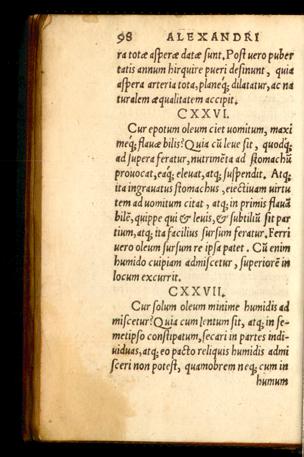 98 ALEXANDRI
ra totæ asperæ datæ sunt. Post vero puber
tatis annum hirquire pueri desinunt, quia
aspera arteria tota, planeq́; dilatatur, ac na
turalem æqualitatem accipit.
CXXVI.
Cur epotum oleum ciet uomitum, maxi
meq́; flauæ bilis? Quia cū leue sit, quodq́;
ad supera feratur, nutrimēta ad stomachū
prouocat, eaq́; eleuat, atq; suspendit. Atq;
ita ingrauatus stomachus, eiectiuam uirtu
tem ad uomitum citat, atq; in primis flauā
bilē, quippe qui & leuis, & subtiliū sit par
tium, atq; ita facilius sursum feratur. Ferri
uero oleum sursum re ipsa patet. Cū enim
humido cuipiam admiscetur, superiorē in
locum excurrit.
CXXVII.
Cur solum oleum minime humidis ad
miscetur? Quia cum lentum sit, atq; in se-
metipso constipatum, secari in partes indi-
uiduas, atq; eo pacto reliquis humidis admi
sceri non potest, quamobrem neq; cum in
humum